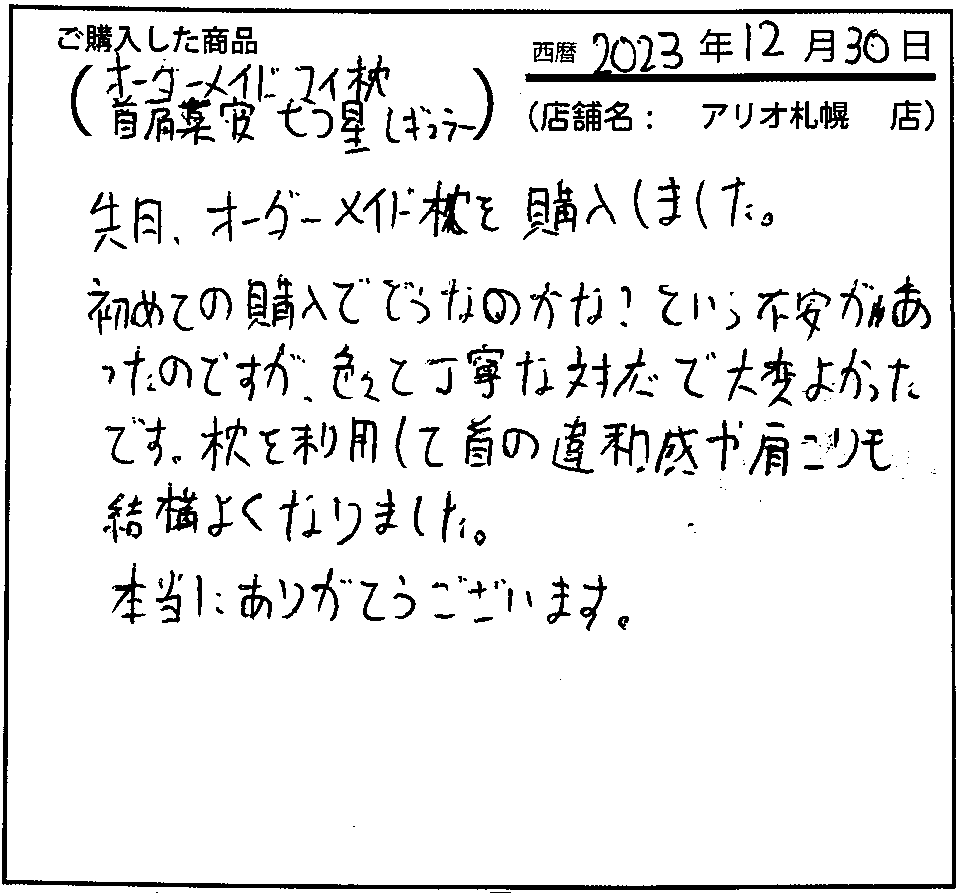 ご購入した商品
西暦 2023年12月30日
(オーダーメイド マイ枕
首肩楽安 七つ星 レギュラー)
(店舗名: アリオ札幌 店)
先月、オーダーメイド枕を購入しました。
初めての購入でどうなのかな?という不安があ
ったのですが、色々と丁寧な対応で大変よかった
です。枕を利用して首の違和感や肩こりも
結構よくなりました。
本当にありがとうございます。